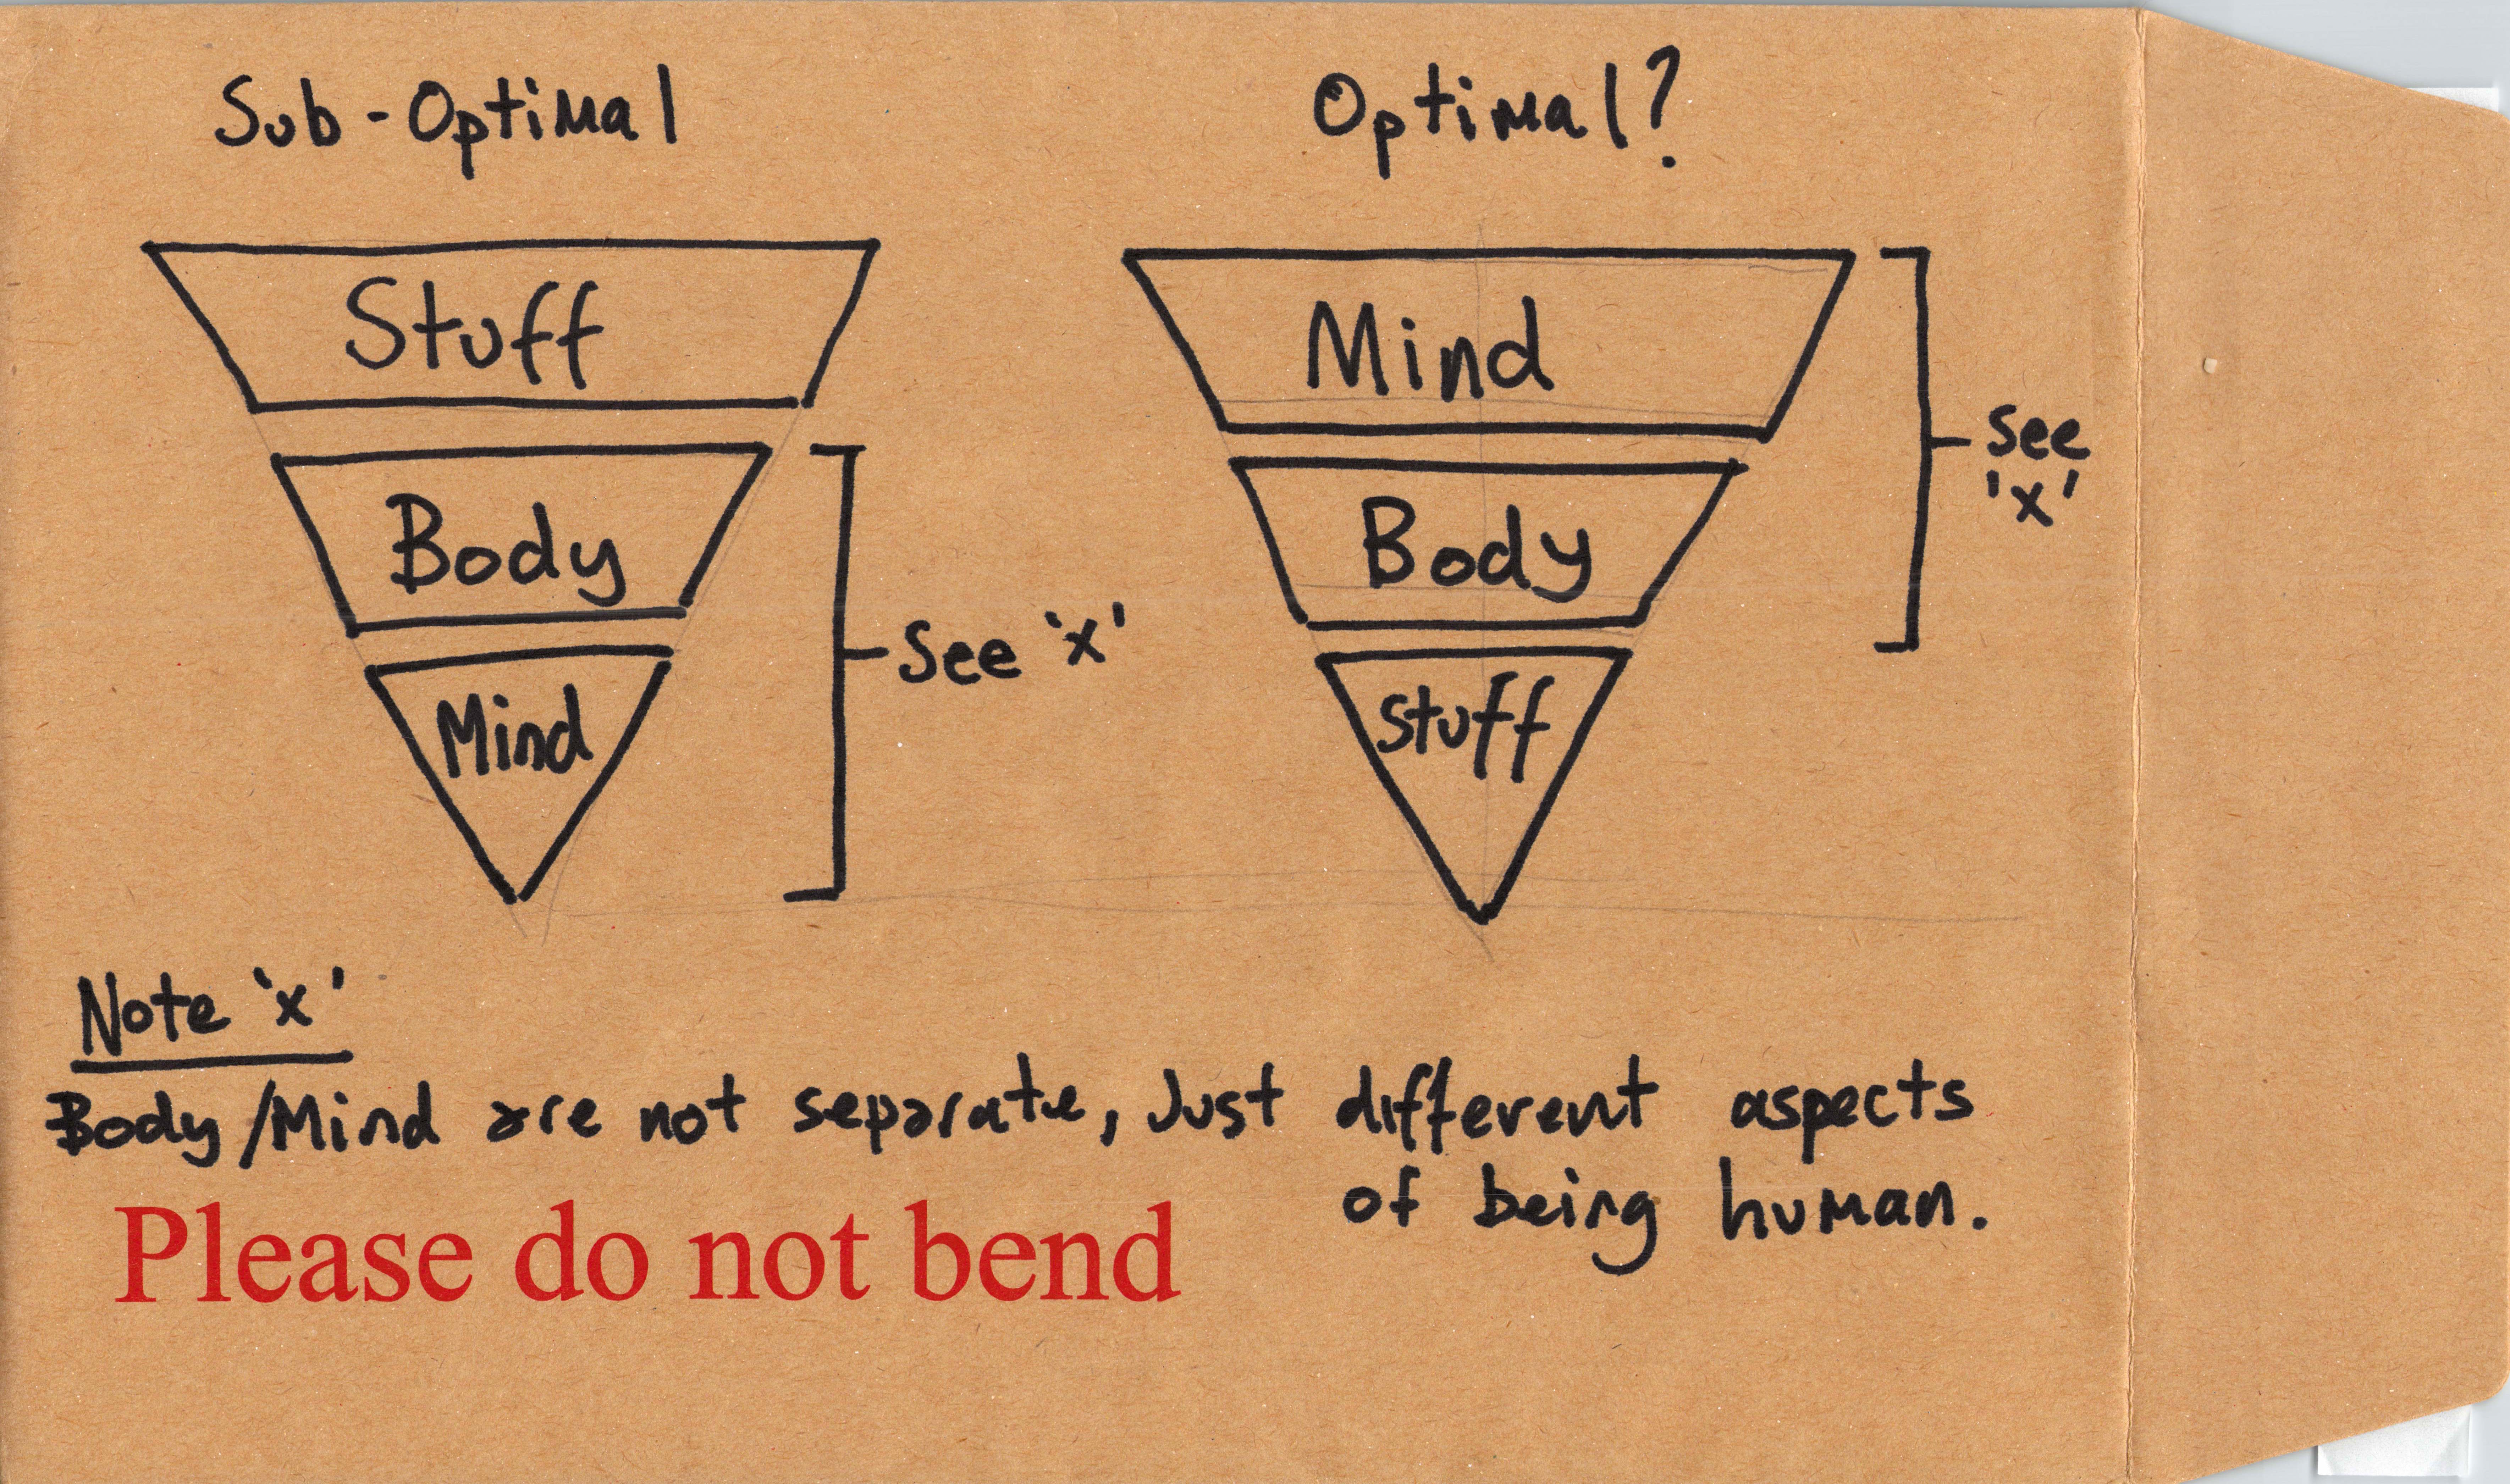 Sub-Optimal
Stuff
Body
Mind
See 'x'
Optimal?
Mind
Body
Stuff
see
'x'
Note 'x'
Body/Mind are not separate, Just different aspects
of being human.
Please do not bend